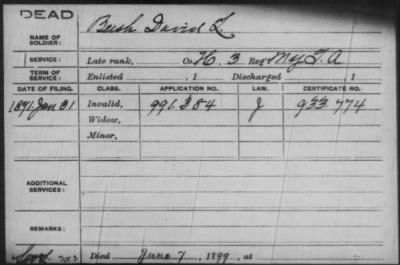 DEAD
NAME OF SOLDIER: Bush David L.
SERVICE: Late rank, Co. H, 3 Reg't
TERM OF SERVICE: Enlisted , 1 Discharged , 1
DATE OF FILING. CLASS. APPLICATION NO. LAW. CERTIFICATE NO.
1891 Jan 31 Invalid, 991.384 J 933.774
Widow,
Minor,
ADDITIONAL SERVICES:
REMARKS:
Died June 7, 1899, at